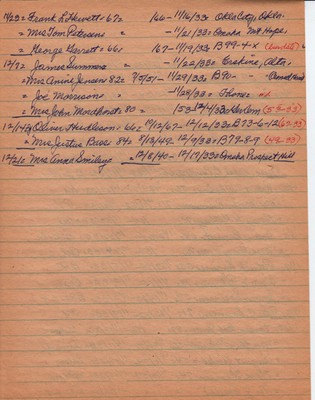 11/23 = Frank L. Hewett = 67 = 1866 - 11/16/33 = Okla City, Okla.
" = Mrs Tom Petersen " - 11/21/33 = Omaha Mt Hope
" = George Garrett = 66 = 1867 - 11/19/33 = B99-4-X
12/7 = James Summers = " - 11/22/33 = Erskine, Alta.
" = Mrs Anine Jensen 82 = 7/5/51 - 11/29/33 = B90 -
" = Joe Morrison = " - 11/28/33 =
" = Mrs John 80 = 1853 - 12/4/33 = Harlem (53-33)
12/14 = Oliver = 66 = 10/12/67 - 12/12/33 = B73-6-12 (67-33)
" = Mrs Justus 84 = 8/13/49 - 12/7/33 = B79-8-9 (49-33)
12/21 = Mrs Anna Smiley = 12/8/40 - 12/17/33 = Omaha Prospect Hill